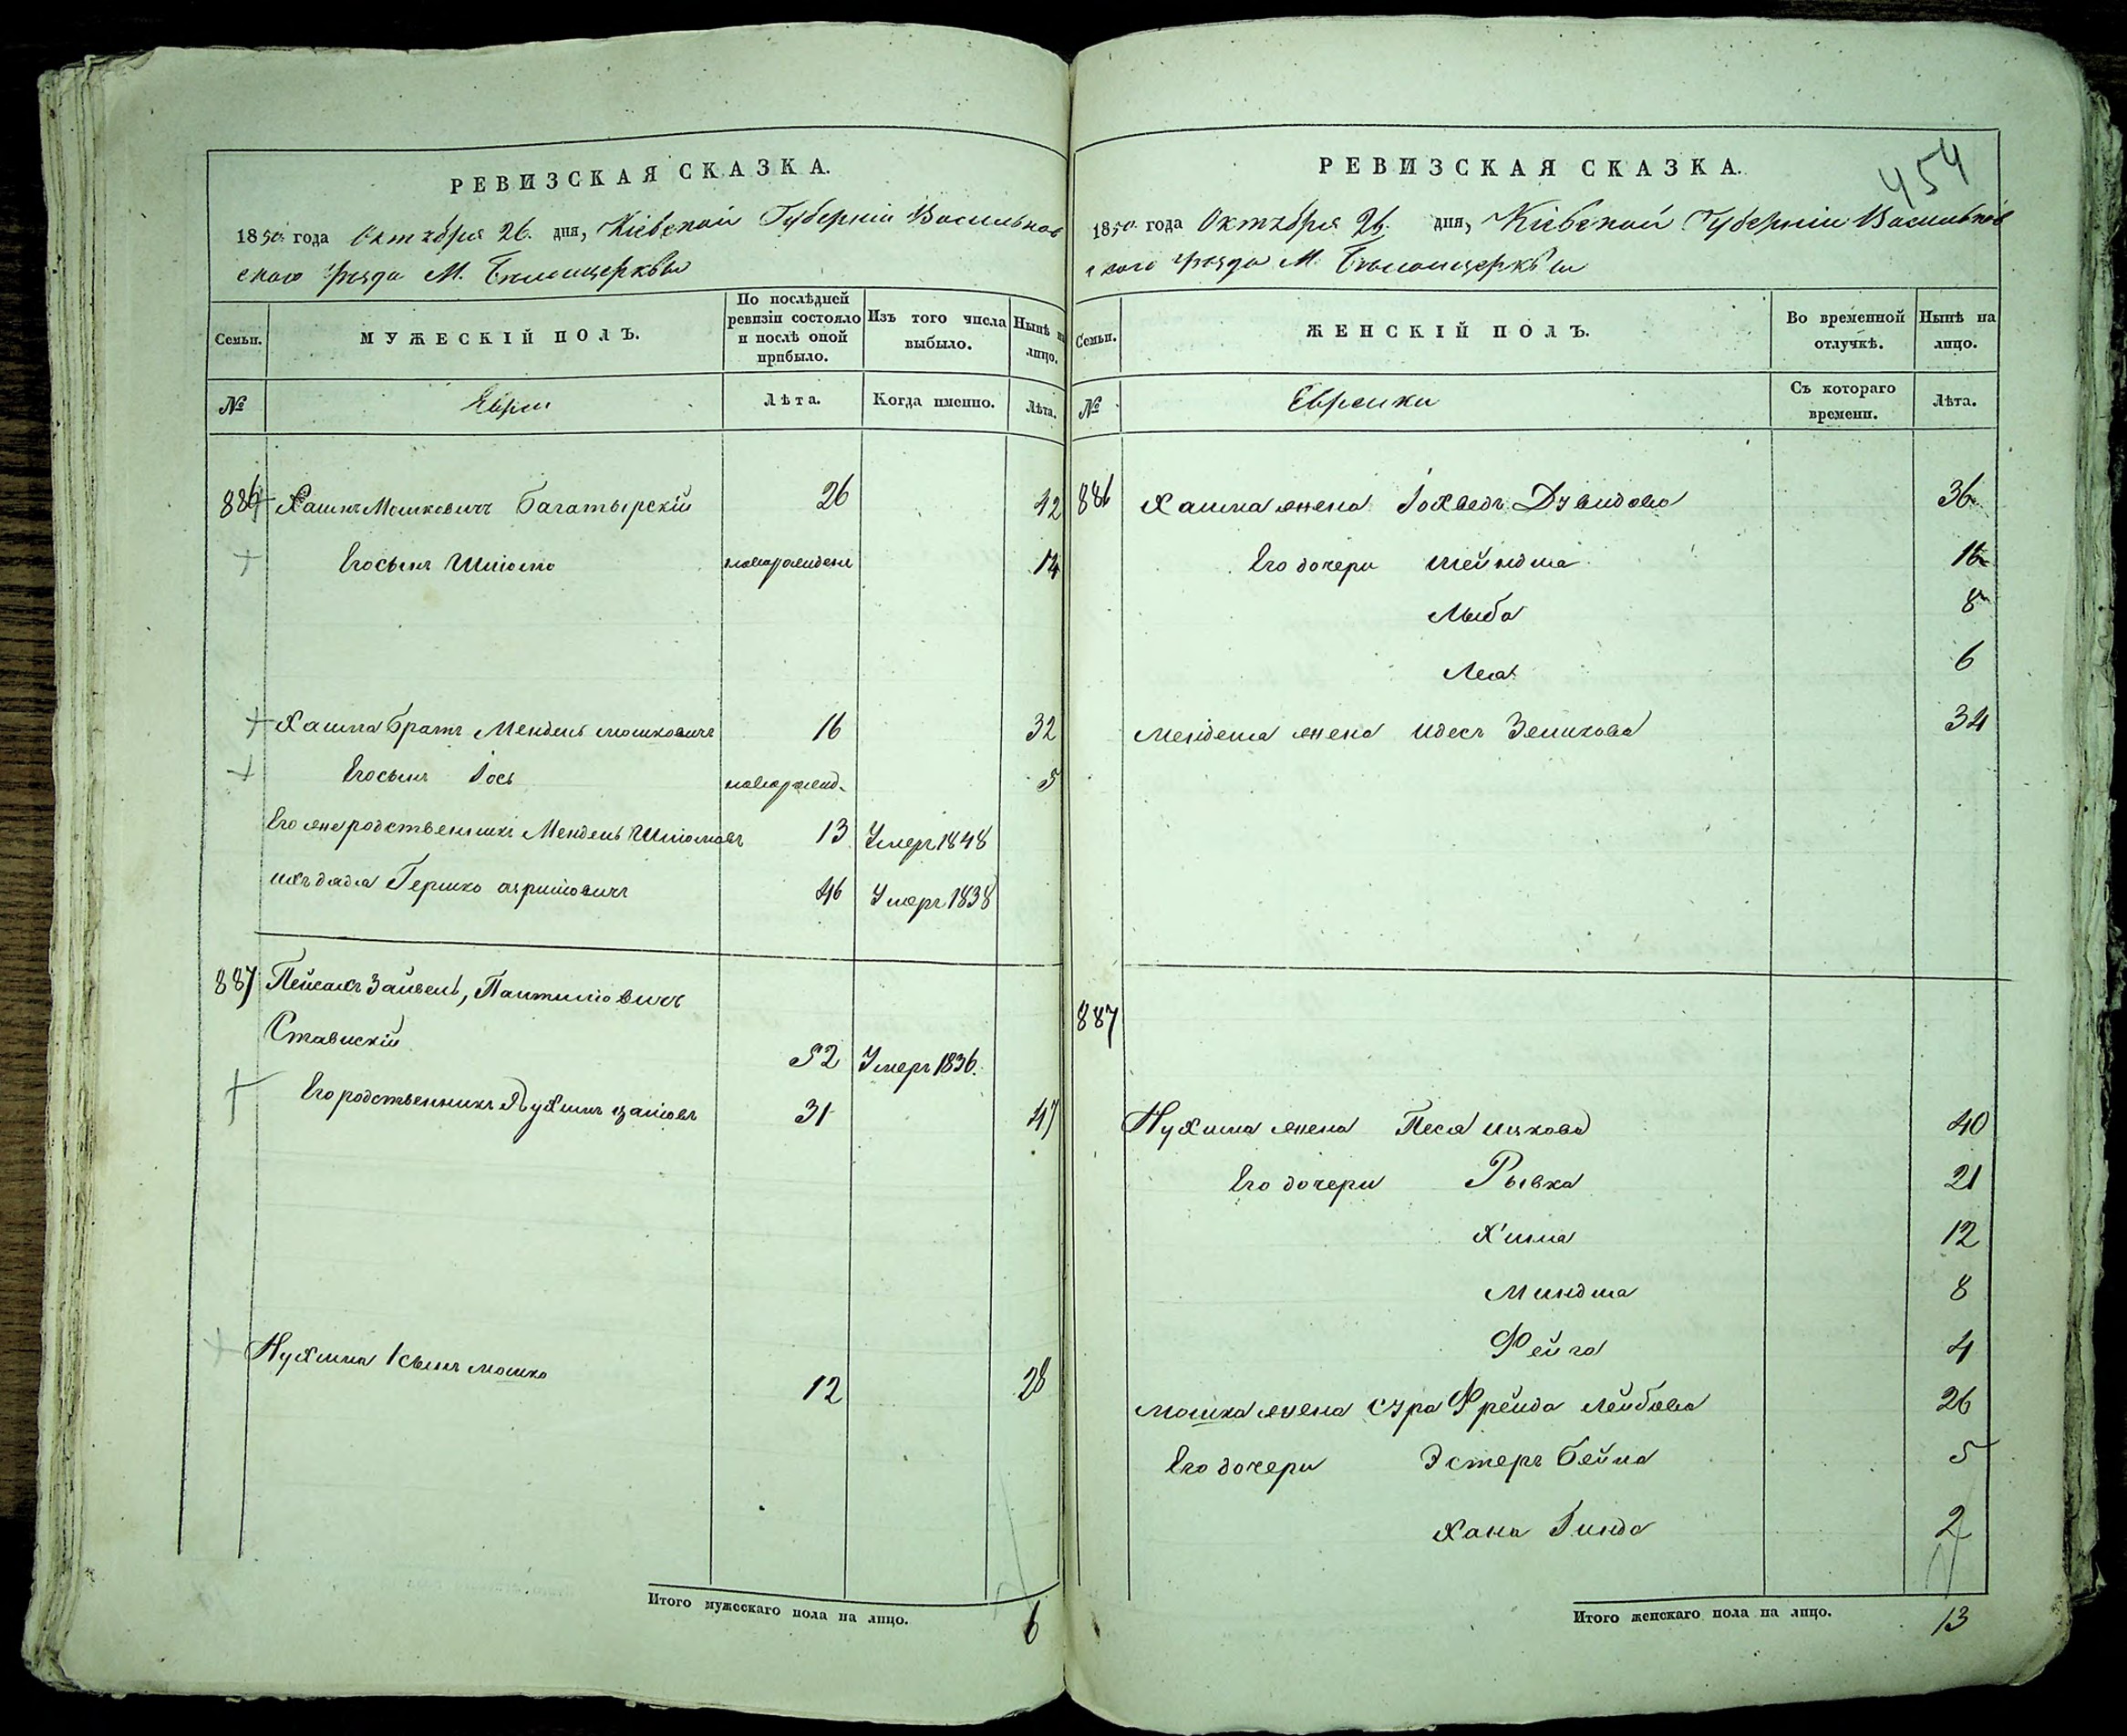 454
РЕВИЗСКАЯ СКАЗКА.
1850 года Октября 26. дня, Кіевской Губерніи Васильков
скаго Уѣзда М. Бѣлоцеркви
Семьи.
МУЖЕСКІЙ ПОЛЪ.
По послѣдней ревизіи состояло и послѣ оной прибыло.
Изъ того числа выбыло.
Нынѣ на лицо.
№
Евреи
Лѣта.
Когда именно.
Лѣта.
886 Хаимъ Мошковичъ Багатырскій 26 42
Его сынъ Шліома новорожденъ 14
Хаима братъ Мендель Мошковичъ 16 32
Его сынъ Іось новорожд. 5
Его же родственникъ Мендель Шліомовъ 13 Умеръ 1848
ихъ дядя Гершко 46 Умеръ 1838
887 Пейсахъ Зайвель,
Ставискій 52 Умеръ 1836.
Его родственникъ Нухимъ 31 47
Нухима 1 сынъ Мошко 12 28
Итого мужескаго пола на лицо. 6
РЕВИЗСКАЯ СКАЗКА.
1850 года Октября 26. дня, Кіевской Губерніи Васильков
скаго Уѣзда М. Бѣлоцеркви
Семьи.
ЖЕНСКІЙ ПОЛЪ.
Во временной отлучкѣ.
Нынѣ на лицо.
№
Еврейки
Съ котораго времени.
Лѣта.
886 Хаима жена Іохведъ Дувидова 36
Его дочери Шейндля 16
Лыба 8
Лея 6
Менделя жена Идесъ Зеликова 34
887
Нухима жена Песя Ицкова 40
Его дочери Рывка 21
Хима 12
Миндля 8
Фейга 4
Мошка жена Сура Фрейда Лейбова 26
Его дочери Эстеръ Бейла 5
Хана Гинда 2
Итого женскаго пола на лицо. 13